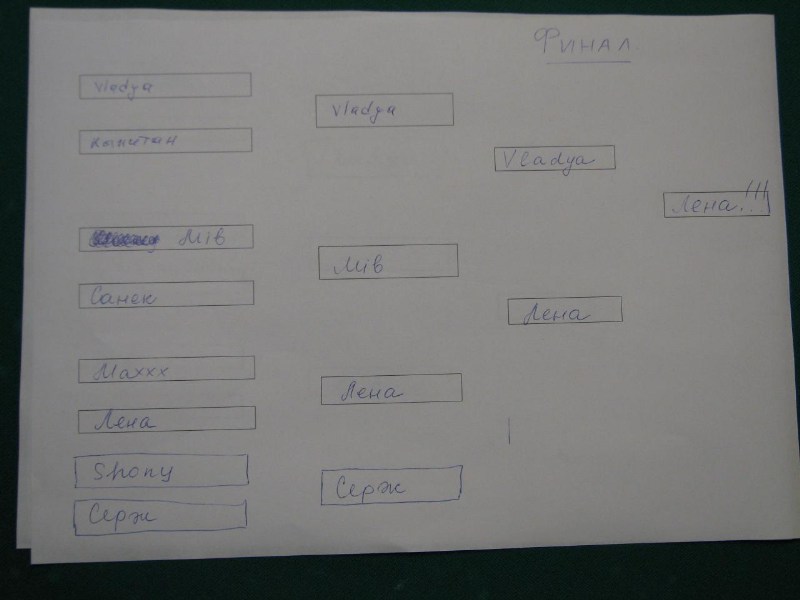 Финал
Vladya
Капитан
Мів
Санек
Maxxx
Лена
Shony
Серж
Vladya
Мів
Лена
Серж
Vladya
Лена
Лена!!!